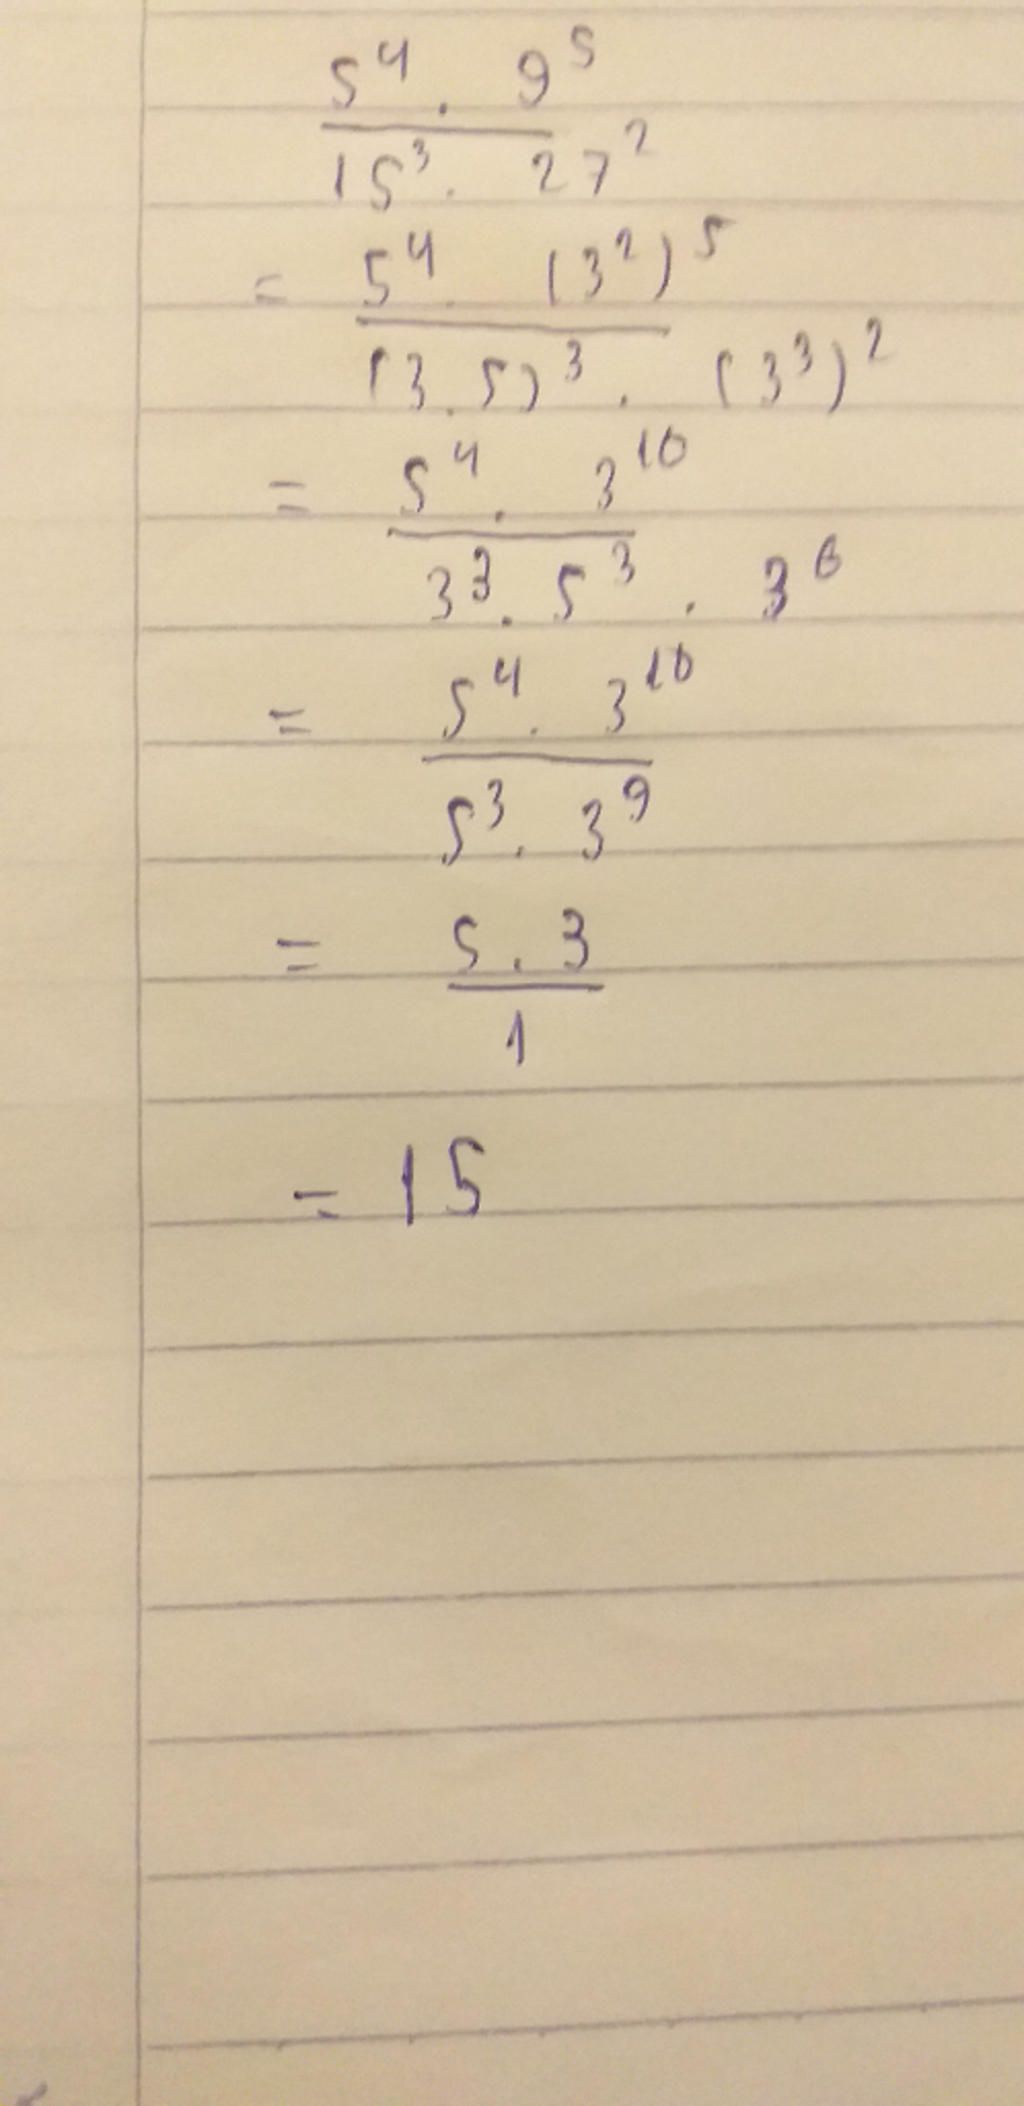 5⁴ . 9⁵
15³ . 27²
= 5⁴ . (3²)⁵
(3.5)³ . (3³)²
= 5⁴ . 3¹⁰
3³ . 5³ . 3⁶
= 5⁴ . 3¹⁰
5³ . 3⁹
= 5 . 3
1
= 15